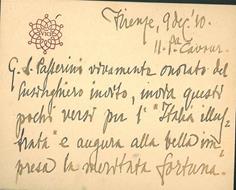 Firenze, 9 dic. '10.
11. P.za Cavour.
G. L. Passerini vivamente onorato del
lusinghiero invito, invia questi
pochi versi per l' "Italia illus-
trata" e augura alla bella im-
presa la meritata fortuna.